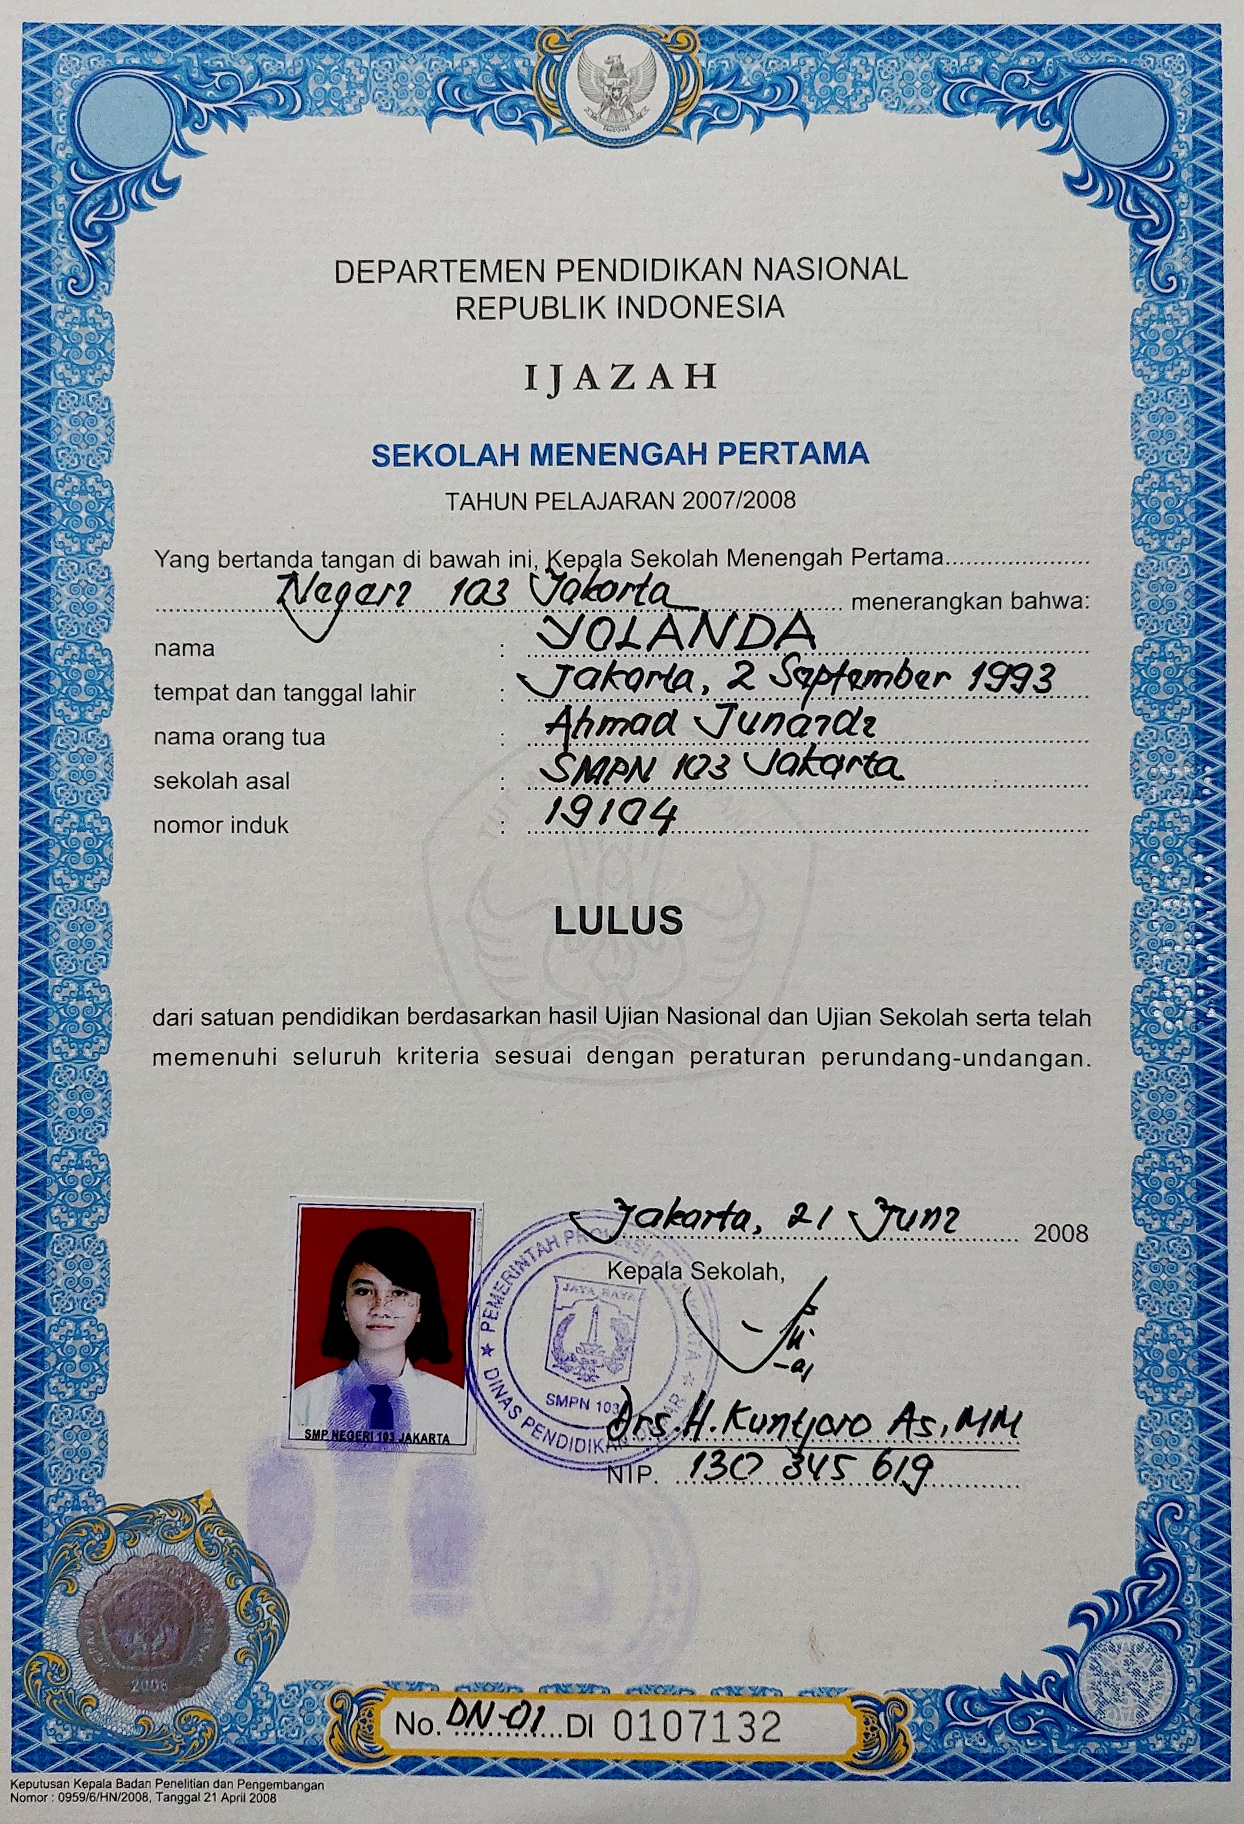 DEPARTEMEN PENDIDIKAN NASIONAL
REPUBLIK INDONESIA
IJAZAH
SEKOLAH MENENGAH PERTAMA
TAHUN PELAJARAN 2007/2008
Yang bertanda tangan di bawah ini, Kepala Sekolah Menengah Pertama......................
Negeri 103 Jakarta menerangkan bahwa:
nama : YOLANDA
tempat dan tanggal lahir : Jakarta, 2 September 1993
nama orang tua : Ahmad Junaidi
sekolah asal : SMPN 103 Jakarta
nomor induk : 19104
LULUS
dari satuan pendidikan berdasarkan hasil Ujian Nasional dan Ujian Sekolah serta telah
memenuhi seluruh kriteria sesuai dengan peraturan perundang-undangan.
Jakarta, 21 Juni 2008
Kepala Sekolah,
PEMERINTAH PROVINSI
JAYA RAYA
SMPN 103
DINAS PENDIDIKAN
Drs. H. Kuntjoro As, MM
NIP. 130 345 619
SMP NEGERI 103 JAKARTA
2008
No. DN-01 DI 0107132
Keputusan Kepala Badan Penelitian dan Pengembangan
Nomor : 0959/6/HN/2008, Tanggal 21 April 2008